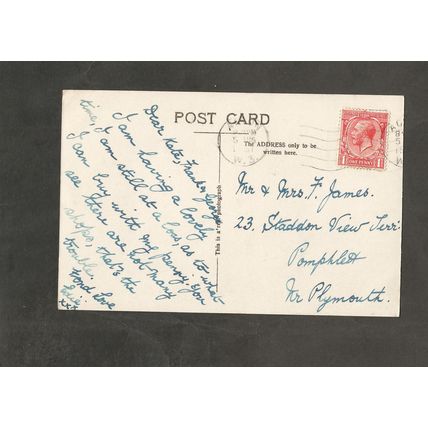 POST CARD
The ADDRESS only to be
written here.
This is a real photograph
Dear Kate, Frank & George
I am having a lovely
time, I am still at a loss as to what
I can buy with my penny. You
see there are not many
shops, that's the
trouble.
Fond Love
xxx
Mr & Mrs. F. James.
23. Staddon View Terr.
Pomphlett
Nr Plymouth.
1 ONE PENNY 1